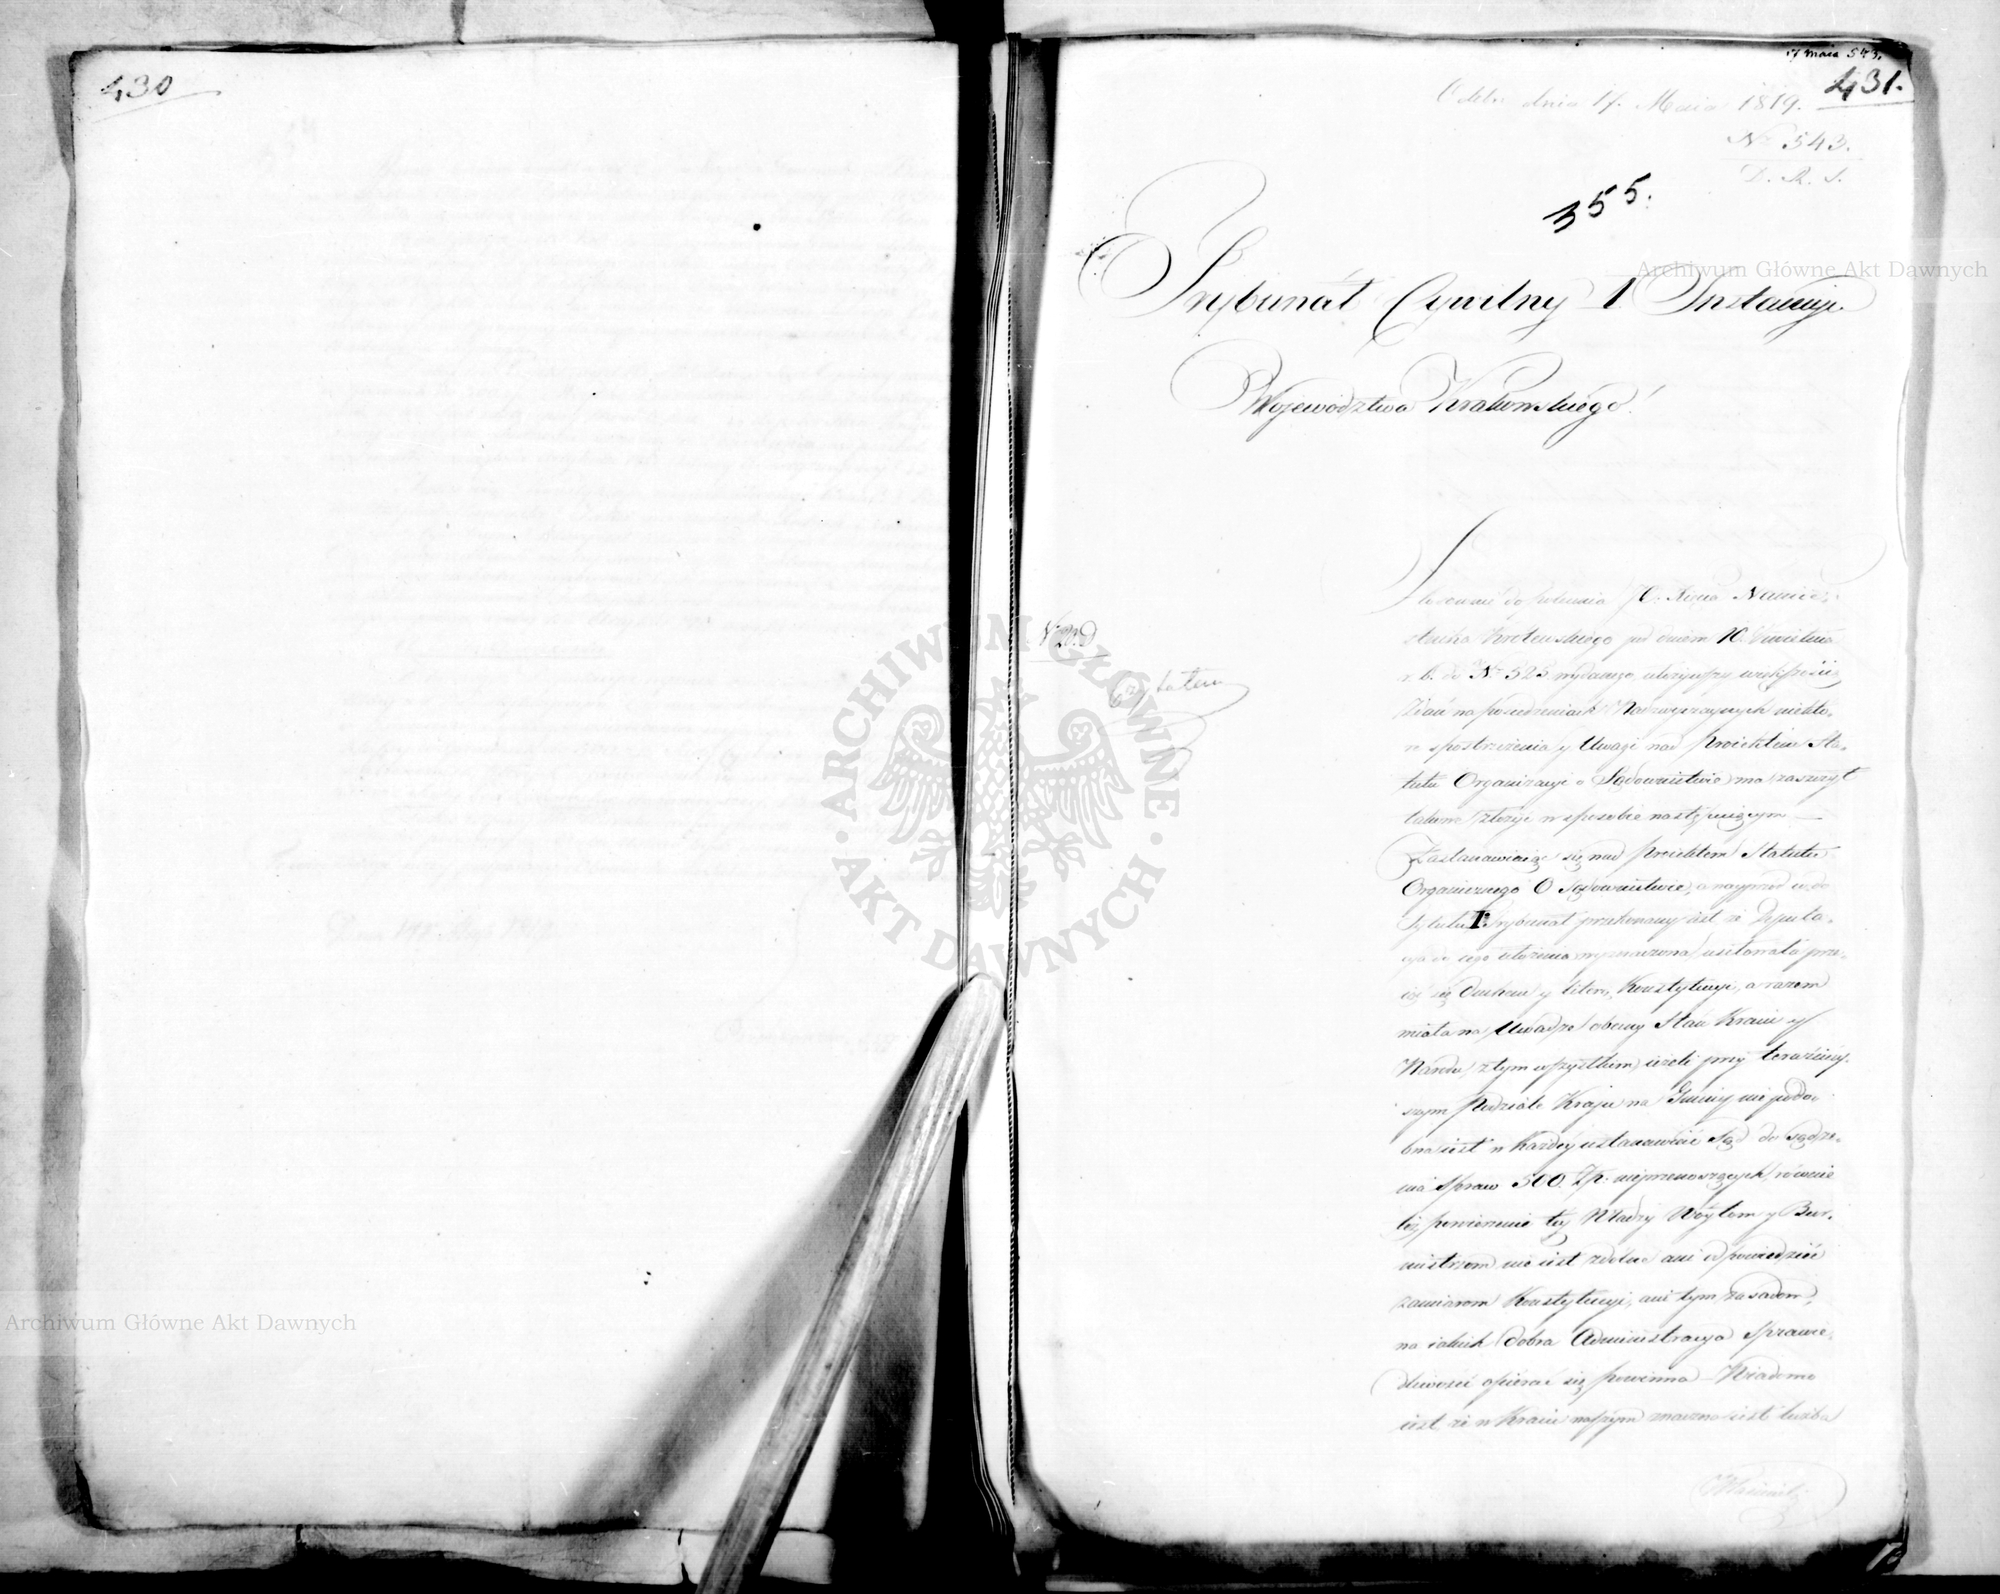 430
17 maia 543.
431.
Odebr. dnia 17. Maia 1819.
No 543.
D. R. S.
355.
Trybunał Cywilny I Instancyi
Województwa Krakowskiego!
No 20. D
Czytałem
Stosownie do polecenia JO. Xięcia Namie-
stnika Królewskiego pod dniem 10. Kwietnia
r. b. do No 525 wydanego, ułożywszy większością
Zdań na posiedzeniach Nadzwyczaynych niektó-
re spostrzeżenia y Uwagi nad Proiektem Sta-
tutu Organizacyi o Sądownictwie ma zaszczyt
takowe złożyć w sposobie następuiącym
Zastanawiaiąc się nad Proiektem Statutu
Organicznego O Sądownictwie, a nayprzód co do
Tytułu I. Trybunał przekonany iest że Deputa-
cya do iego ułożenia wyznaczona usiłowała prze-
iąć się Duchem y literą Konstytucyi, a razem
miała na Uwadze obecny Stan Kraiu y
Narodu, z tym wszystkim ieżeli przy teraźniey-
szym Podziale Kraju na Gminy nie podo-
bna iest w każdey ustanowić Sąd do sądze-
nia Spraw 500. Zp. nieprzenoszących, równie
też powierzenie tey Władzy Wóytom y Bur-
mistrzom nie iest zdolne ani odpowiedzieć
zamiarom Konstytucyi, ani tym zasadom,
na iakich dobra Administracya Sprawie-
dliwości opierać się powinna Wiadomo
iest, że w Kraiu naszym znaczna iest liczba
Archiwum Główne Akt Dawnych
Archiwum Główne Akt Dawnych
ARCHIWUM GŁÓWNE · AKT DAWNYCH ·